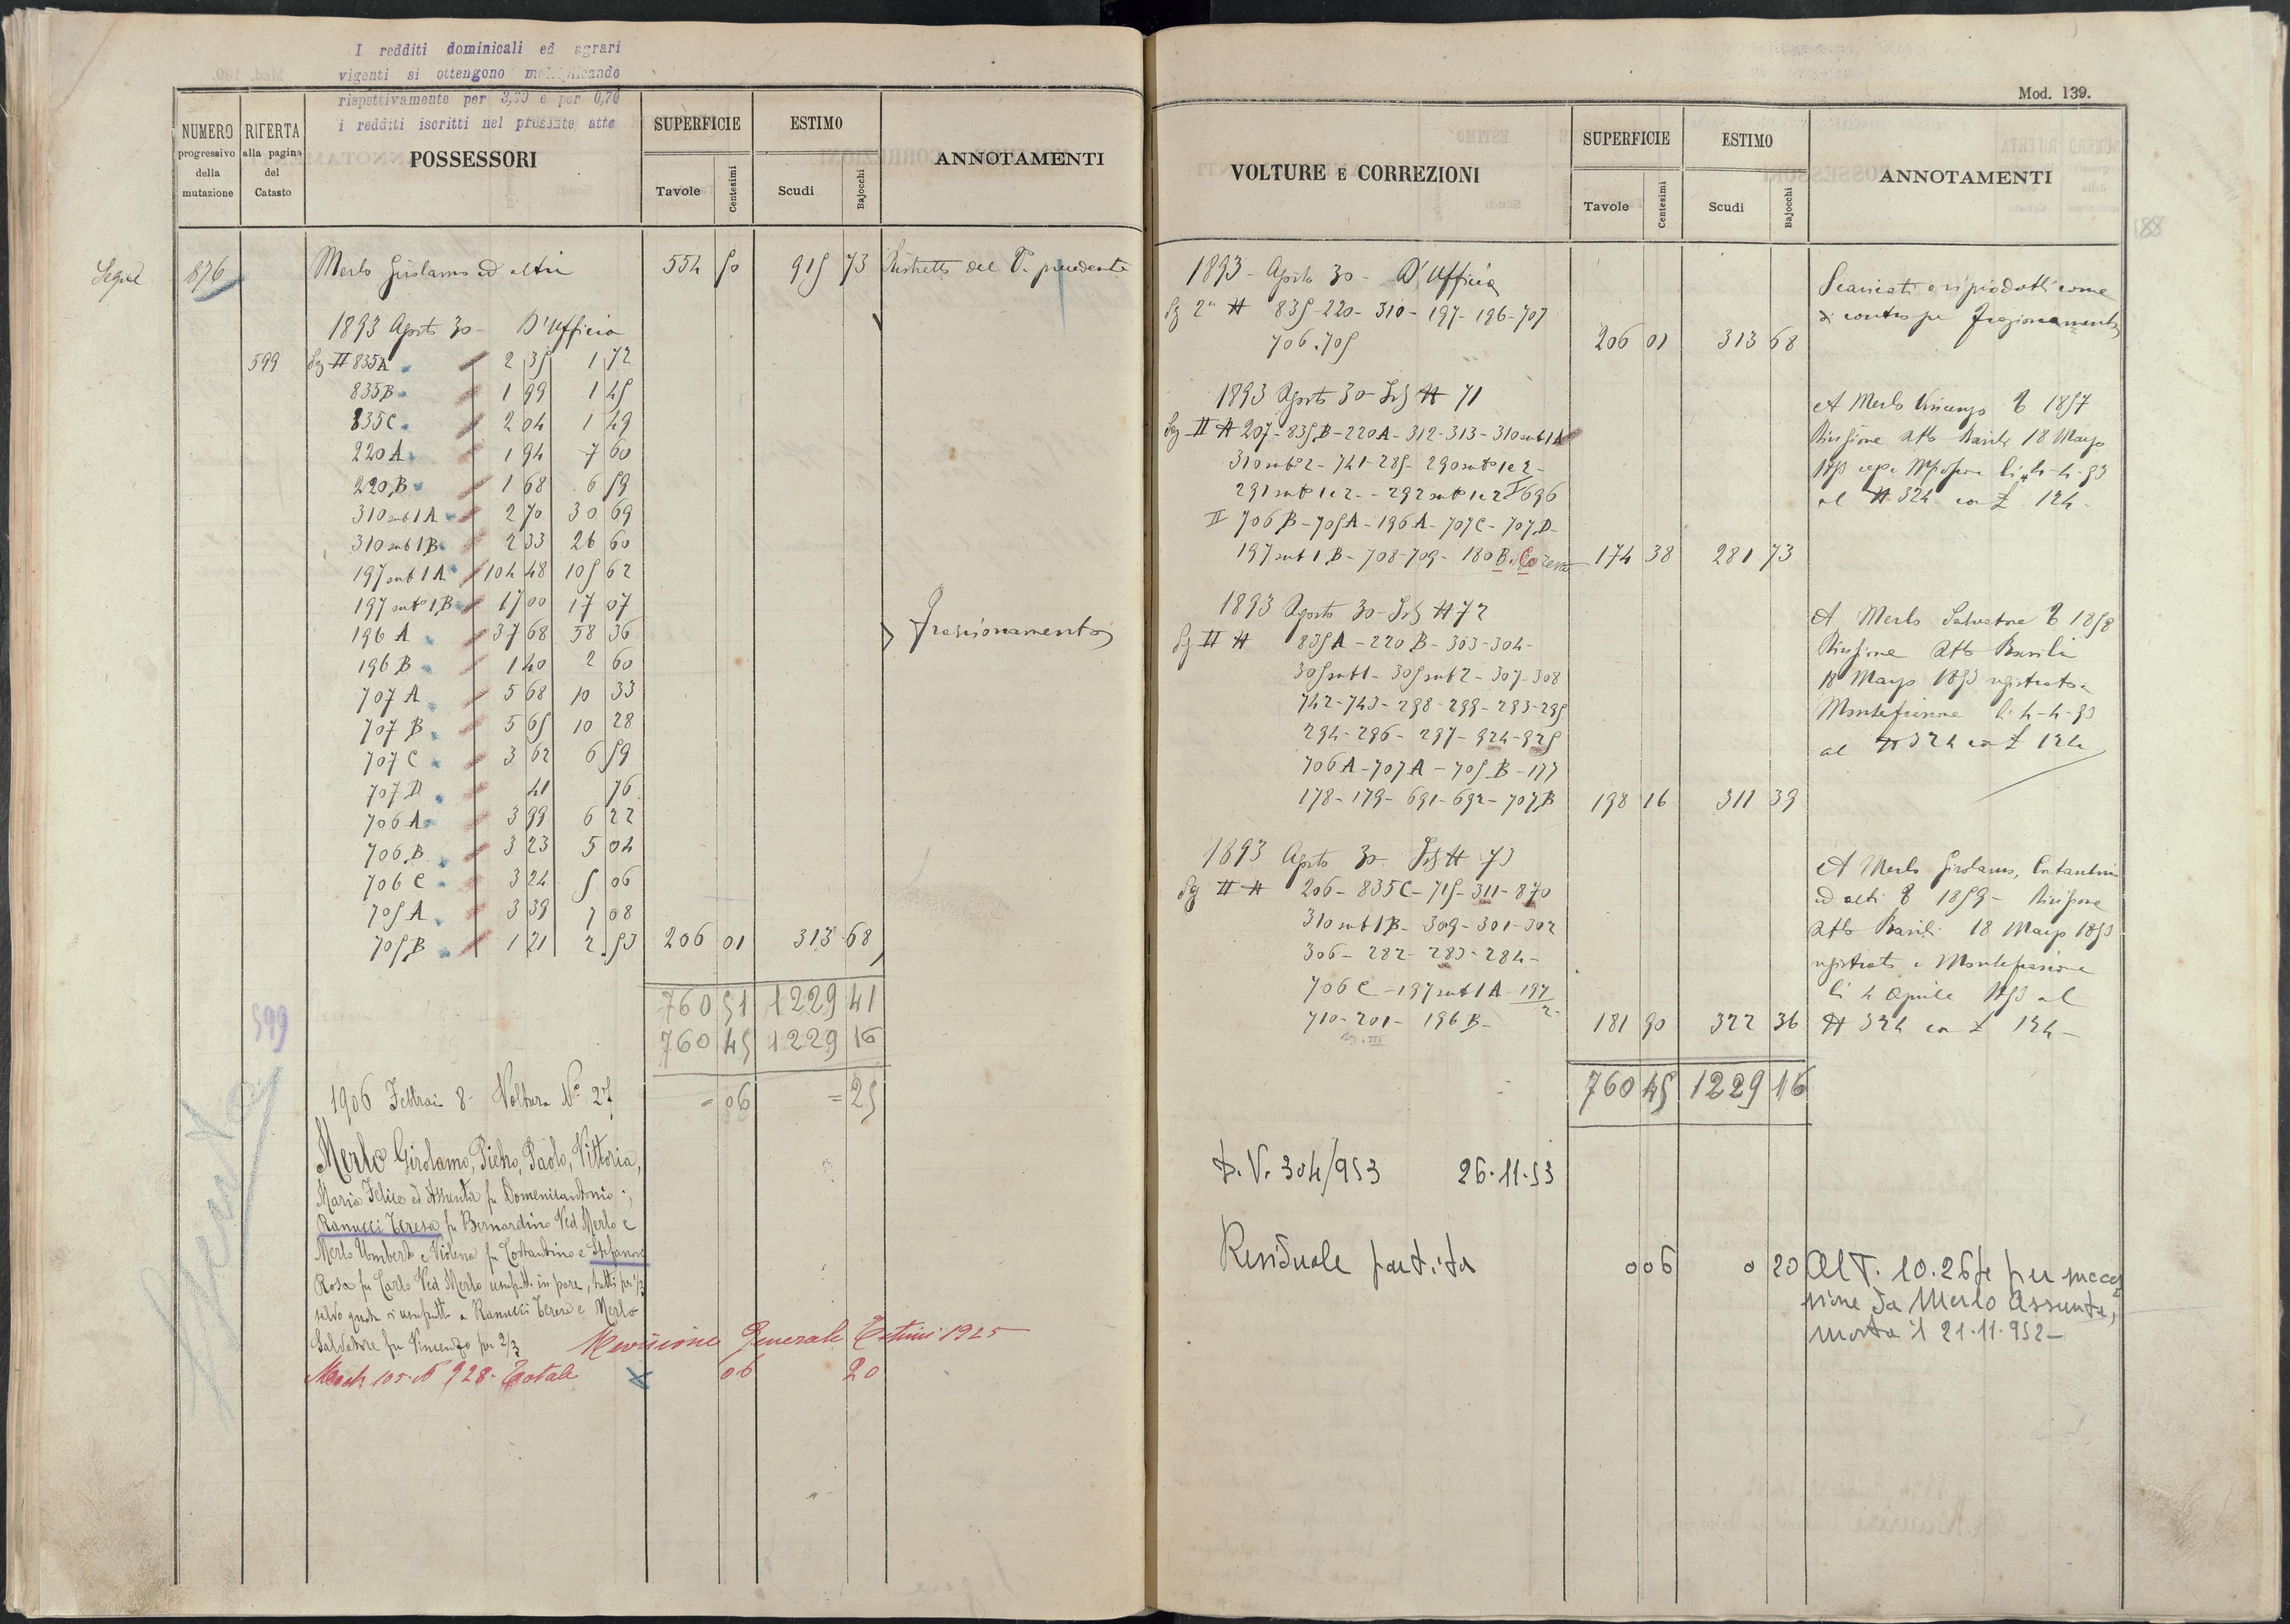 I redditi dominicali ed agrari
vigenti si ottengono moltiplicando
rispettivamente per 3,20 e per 0,70
i redditi iscritti nel presente atto
NUMERO progressivo della mutazione
RIFERTA alla pagina del Catasto
POSSESSORI
SUPERFICIE
Tavole Centesimi
ESTIMO
Scudi Bajocchi
ANNOTAMENTI
Segue 876 Merlo Girolamo ed altri 554 50 915 73 Ristretto del V. precedente
1893 Agosto 30 - D'Ufficio
599 Sez II 835A 2 35 1 72
835B 1 99 1 45
835C 2 04 1 49
220A 1 94 7 60
220B 1 68 6 59
310 sub 1A 2 70 30 69
310 sub 1B 2 33 26 60
197 sub 1A 104 48 105 62
197 sub 1B 17 00 17 07
196 A 37 68 58 36
196 B 1 40 2 60
707 A 5 68 10 33
707 B 5 65 10 28
707 C 3 62 6 59
707 D 41 76
706 A 3 99 6 22
706 B 3 23 5 04
706 C 3 24 5 06
705 A 3 39 7 08
705 B 1 21 2 53 206 01 313 68
Frazionamento
760 51 1229 41
599 760 45 1229 16
1906 Febbraio 8 - Voltura N° 27 = 06 = 25
Merlo Girolamo, Pietro, Paolo, Vittoria,
Maria Felice ed Assunta fu Domenicantonio;
Ranucci Teresa fu Bernardino Ved Merlo e
Merlo Umberto e Violena fu Costantino e Stefanoni
Rosa fu Carlo Ved Merlo usufrutt. in parte, tutti per 1/3
salvo quota di usufrutto a Ranucci Teresa e Merlo
Salvatore fu Vincenzo per 2/3
Revisione Generale Estimi 1925
928 - Totale 06 20
Mod. 139.
VOLTURE E CORREZIONI
SUPERFICIE
Tavole Centesimi
ESTIMO
Scudi Bajocchi
ANNOTAMENTI
88
1893 - Agosto 30 - D'Ufficio
Sez 2a N 835-220-310-197-196-707
706.705 206 01 313 68
Scaricati e riprodotti come
di contro per frazionamento
1893 Agosto 30 - N 71
Sez II N 207-835B-220A-312-313-310 sub 1A
310 sub 2-741-285-290 sub 1 e 2-
291 sub 1 e 2 - 292 sub 1 e 2 696
II 706B-705A-196A-707C-707D-
197 sub 1B-708-709-180B 174 38 281 73
A Merlo Vincenzo 1857
Divisione atto Basili 18 Marzo
1893 li 4-4-93
al N 324 con £ 124-
1893 Agosto 30 - N 72
Sez II N 835A-220B-303-304-
305 sub 1-305 sub 2-307-308
742-743-298-299-293-295
294-296-297-924-925
706A-707A-705B-177
178-179-691-692-707B 198 16 311 39
A Merlo Salvatore 1858
Divisione atto Basili
18 Marzo 1893 registrato a
Montefiascone li 4-4-93
al N 324 con £ 124
1893 Agosto 30 - N 73
Sez II N 206-835C-715-311-870
310 sub 1B-309-301-302
306-282-283-284-
706C-197 sub 1A-197/2-
710-201-196B- 181 90 322 36
A Merlo Girolamo, Costantino
ed altri 1859 - Divisione
atto Basili 18 Marzo 1893
registrato a Montefiascone
li 4 Aprile 1893 al
N 324 con £ 124-
760 45 1229 16
D.V. 304/953 26-11-53
Residuale partita 0 06 0 20
Al T. 10.264 per succes
sione da Merlo Assunta,
morta il 21-11-952-